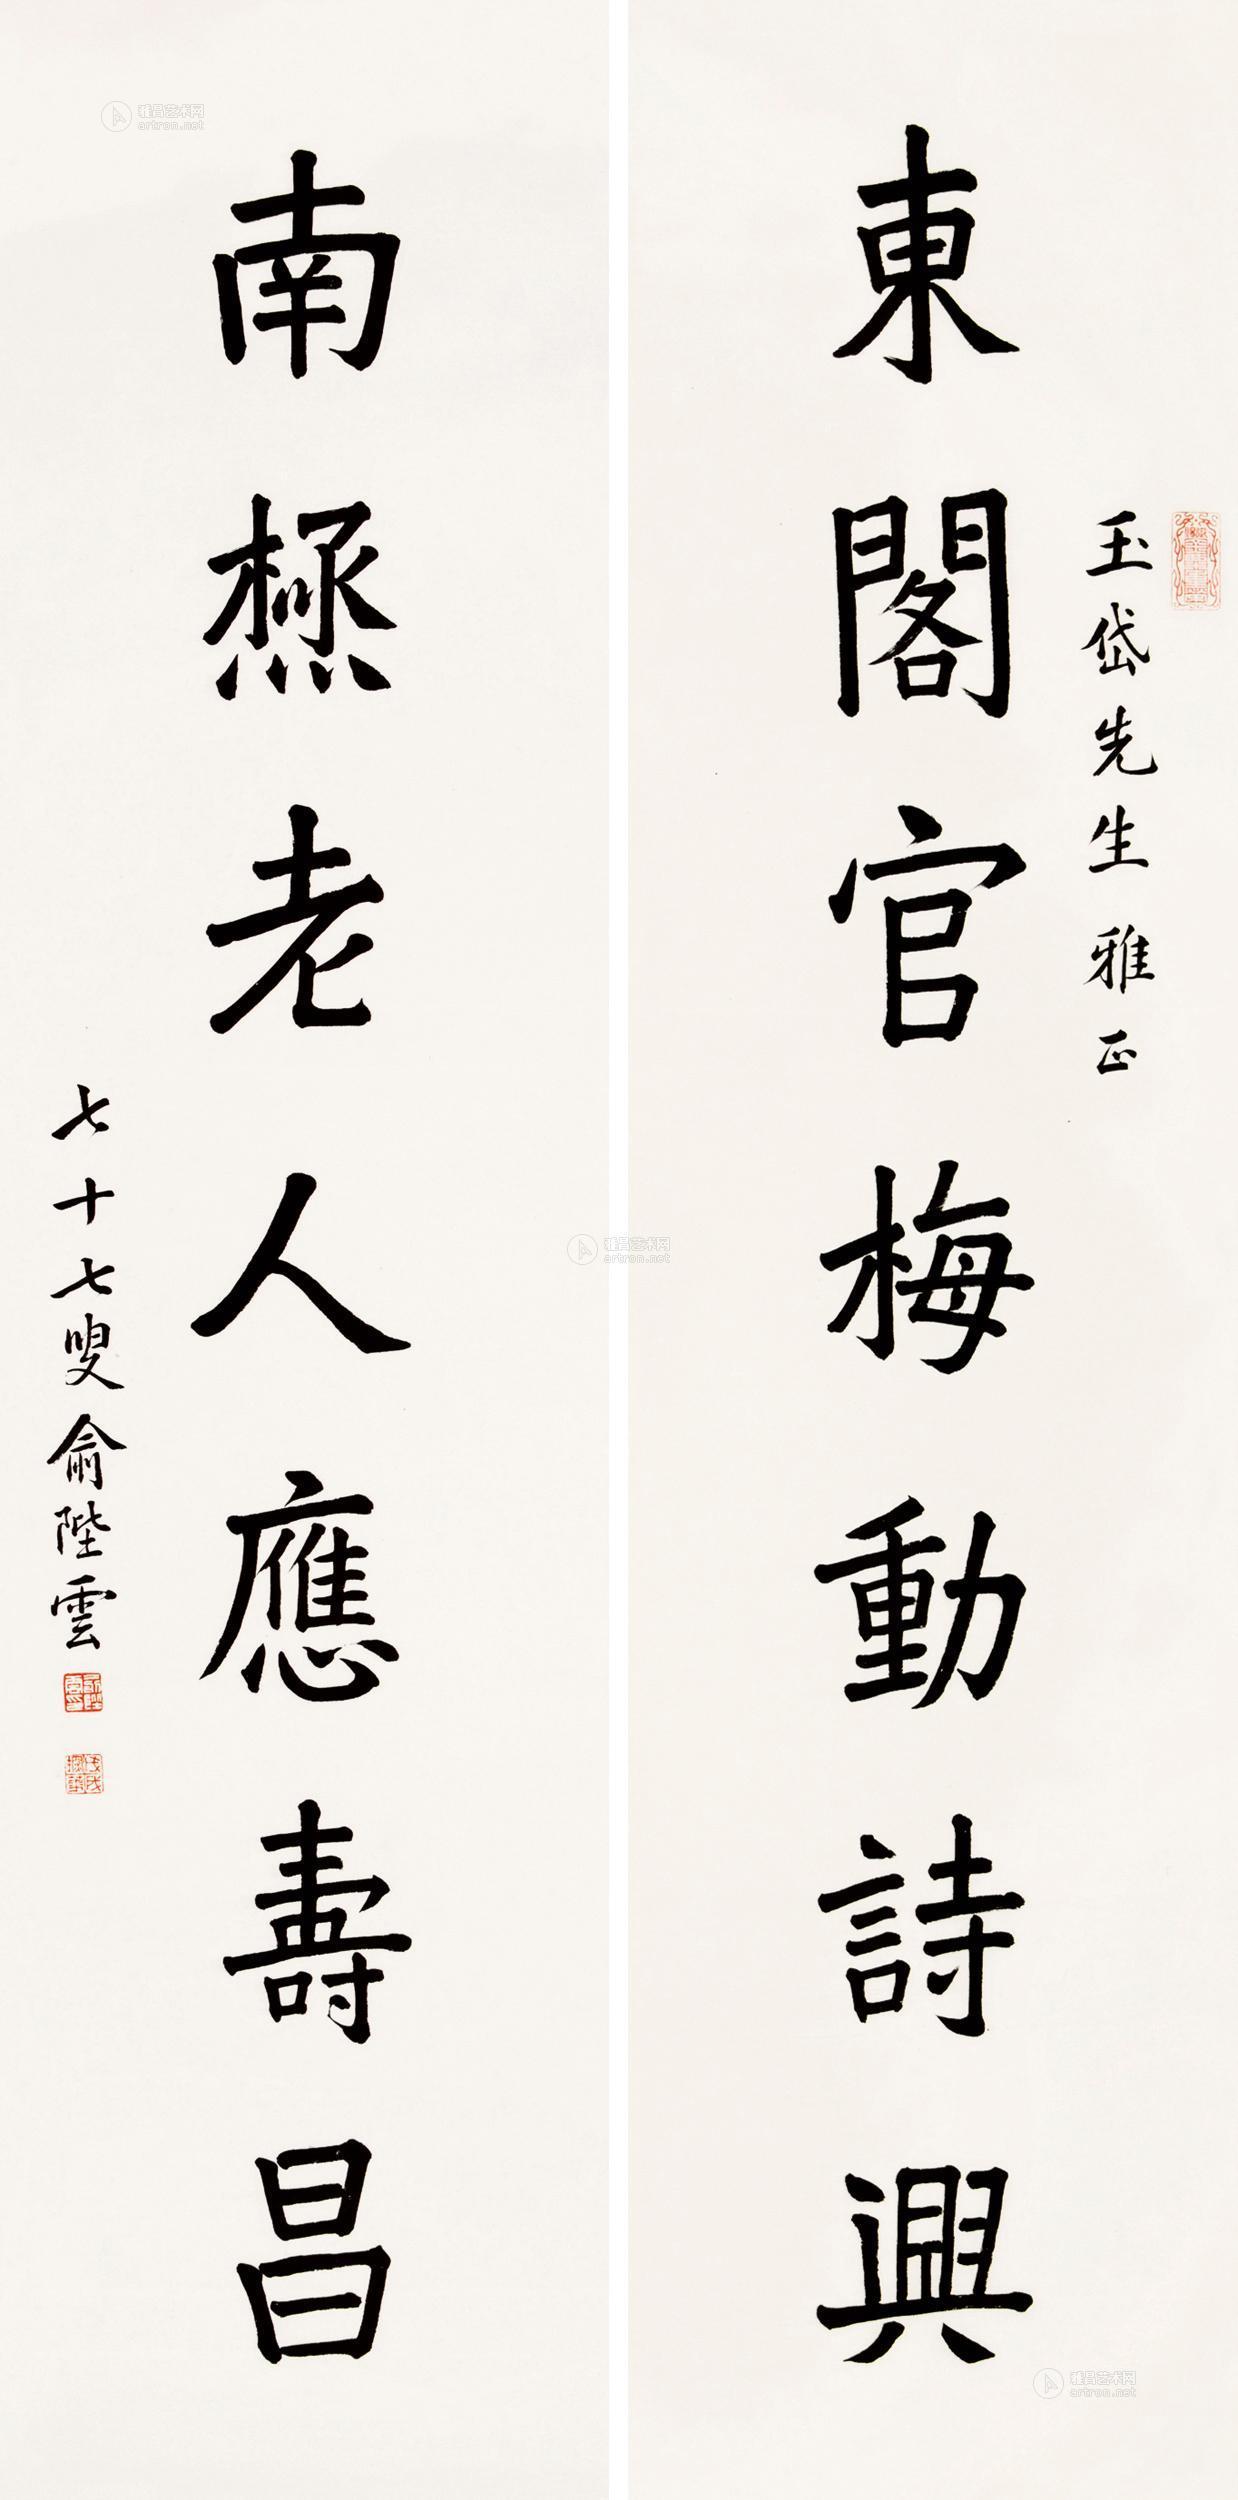 東閣官梅動詩興
玉岱先生雅正
南極老人應壽昌
七十七叟俞陛雲
雅昌艺术网
artron.net
雅昌艺术网
artron.net
雅昌艺术网
artron.net